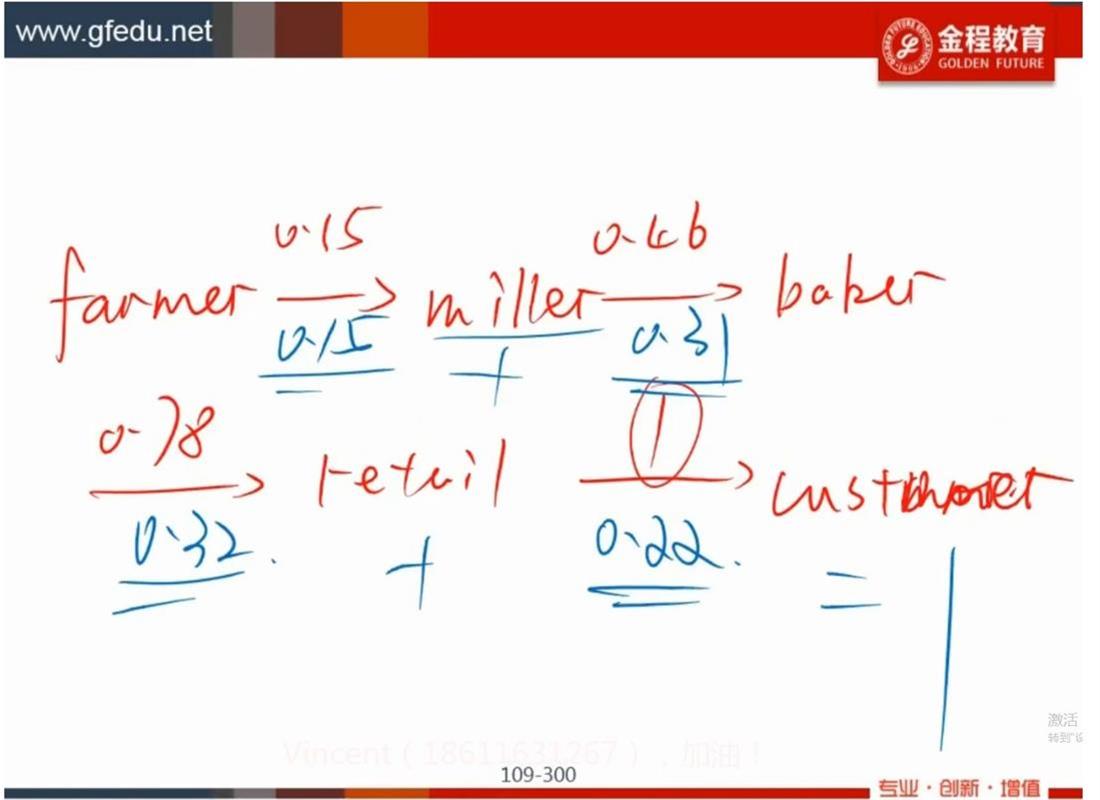 www.gfedu.net
金程教育
GOLDEN FUTURE
0.15 0.46
farmer → miller → baker
0.15 + 0.31
0.78 1
→ retail → customer
0.32 + 0.22 = 1
激活
转到"设
Vincent（18611631267），加油！
109-300
专业·创新·增值